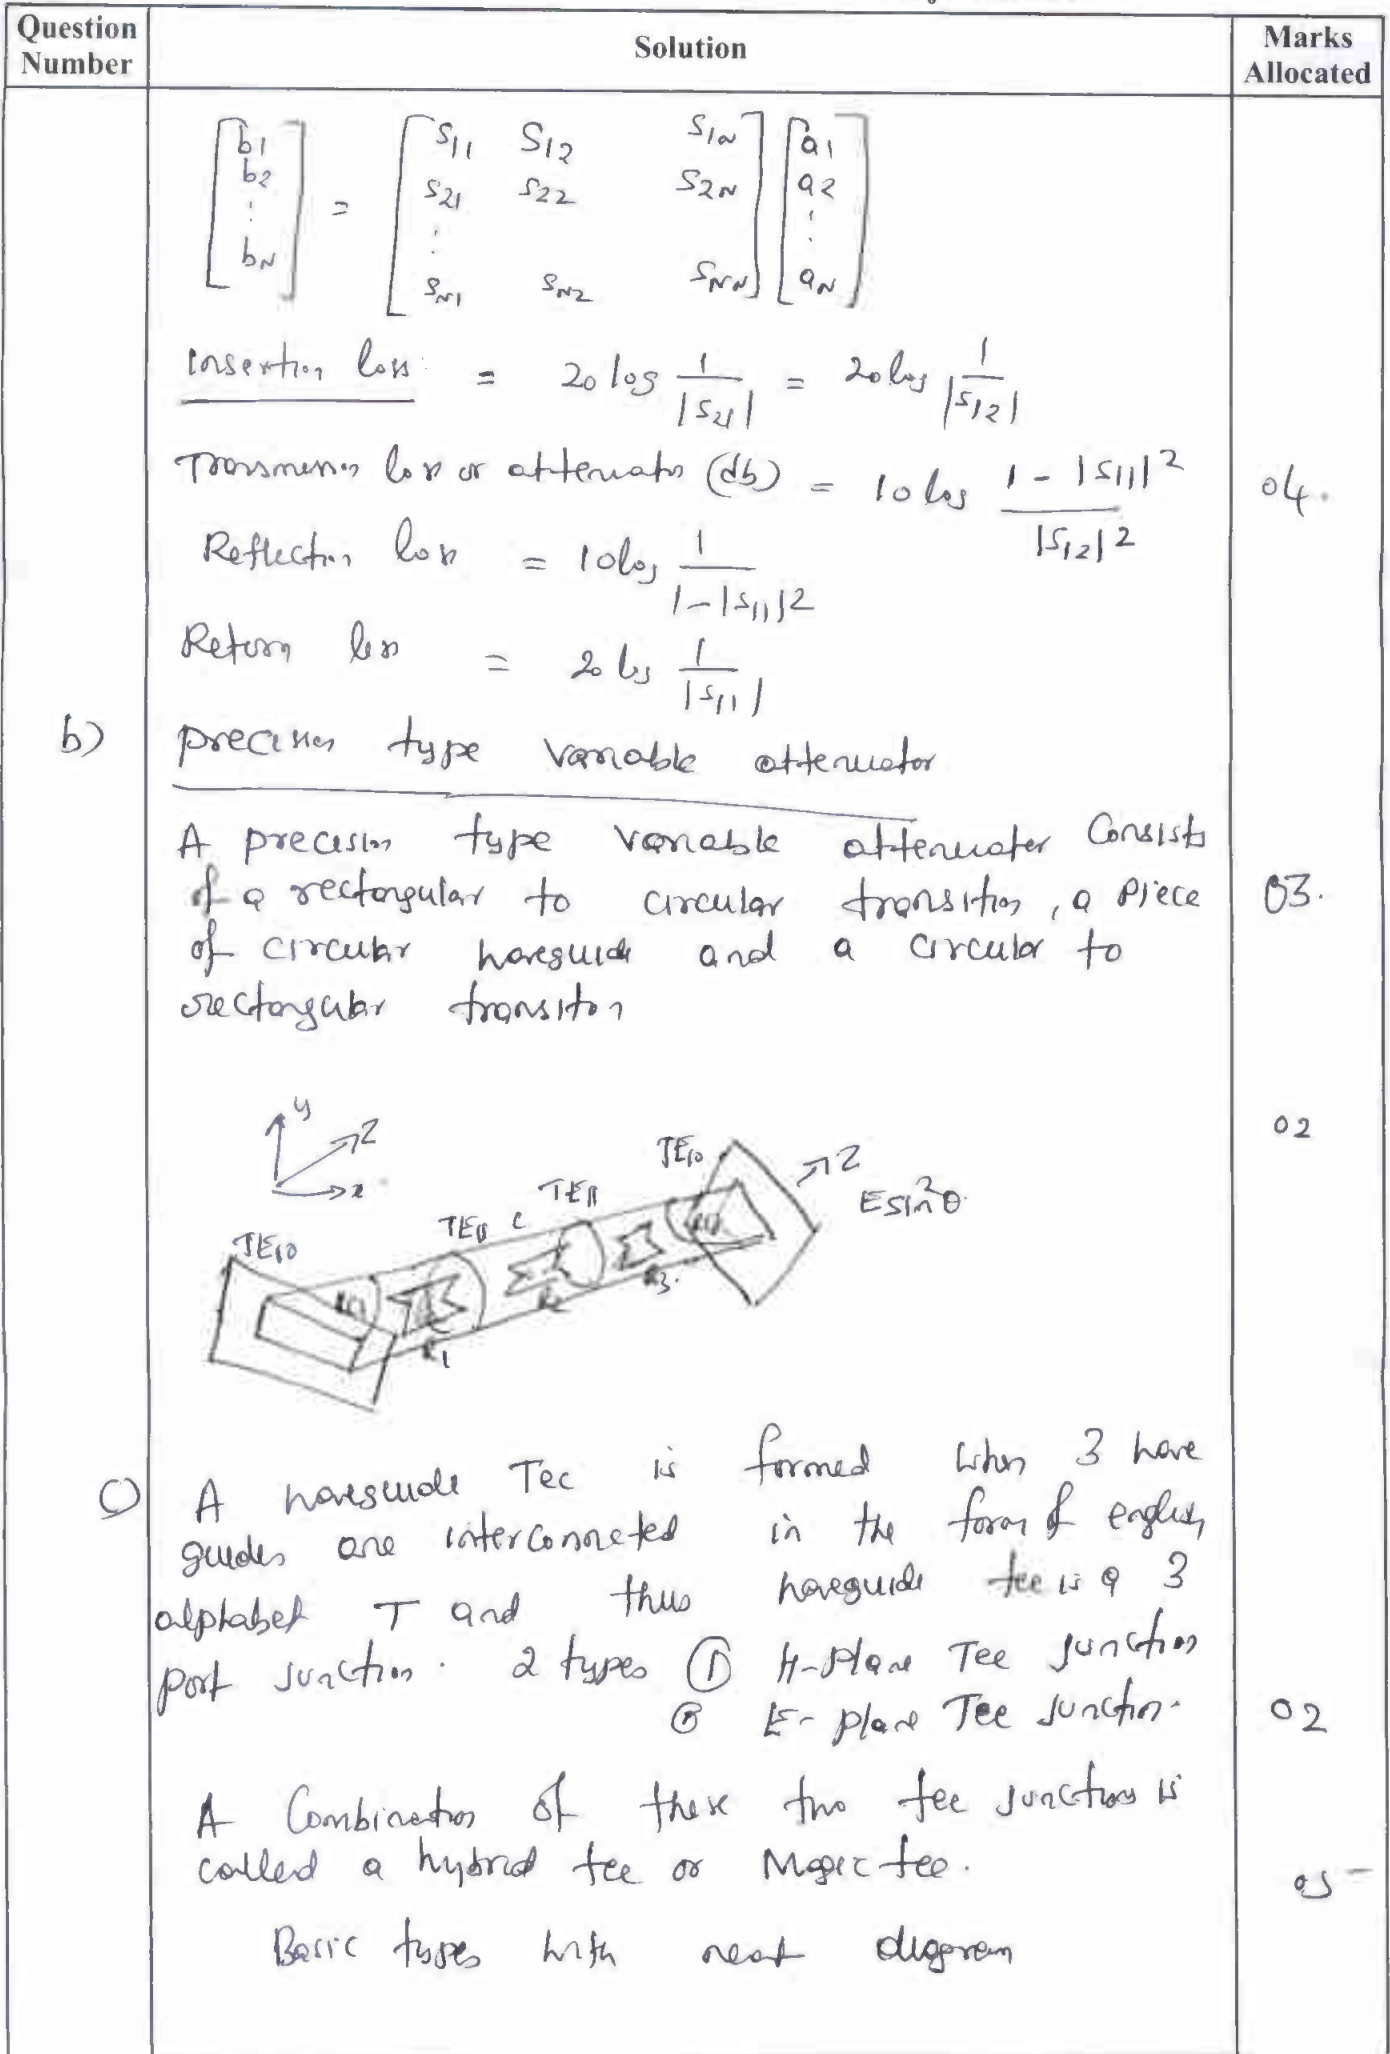 Question Number | Solution | Marks Allocated
[b1 b2 ⋮ bN] = [S11 S12 S1N
S21 S22 S2N
⋮
SN1 SN2 SNN] [a1 a2 ⋮ aN]
Insertion loss = 20 log 1/|S21| = 20 log 1/|S12|
Transmission loss or attenuation (db) = 10 log (1 - |S11|^2)/|S12|^2 04.
Reflection loss = 10 log 1/(1-|S11|^2)
Return loss = 20 log 1/|S11|
b) precision type variable attenuator
A precision type variable attenuator Consists
of a rectangular to circular transition, a Piece 03.
of circular waveguide and a circular to
rectangular transition
y
z
x
02
TE10
TE11
C
TE11
TE10
z
E sin^2 θ
R1
R2
R3.
c) A waveguide Tee is formed when 3 wave
guides are interconneted in the form of english
alphabet T and thus waveguide tee is a 3
port junction. 2 types ① H-plane Tee junction
② E-plane Tee junction. 02
A Combination of these two tee junctions is
called a hybrid tee or Magic tee. 05
Basic types with neat diagram